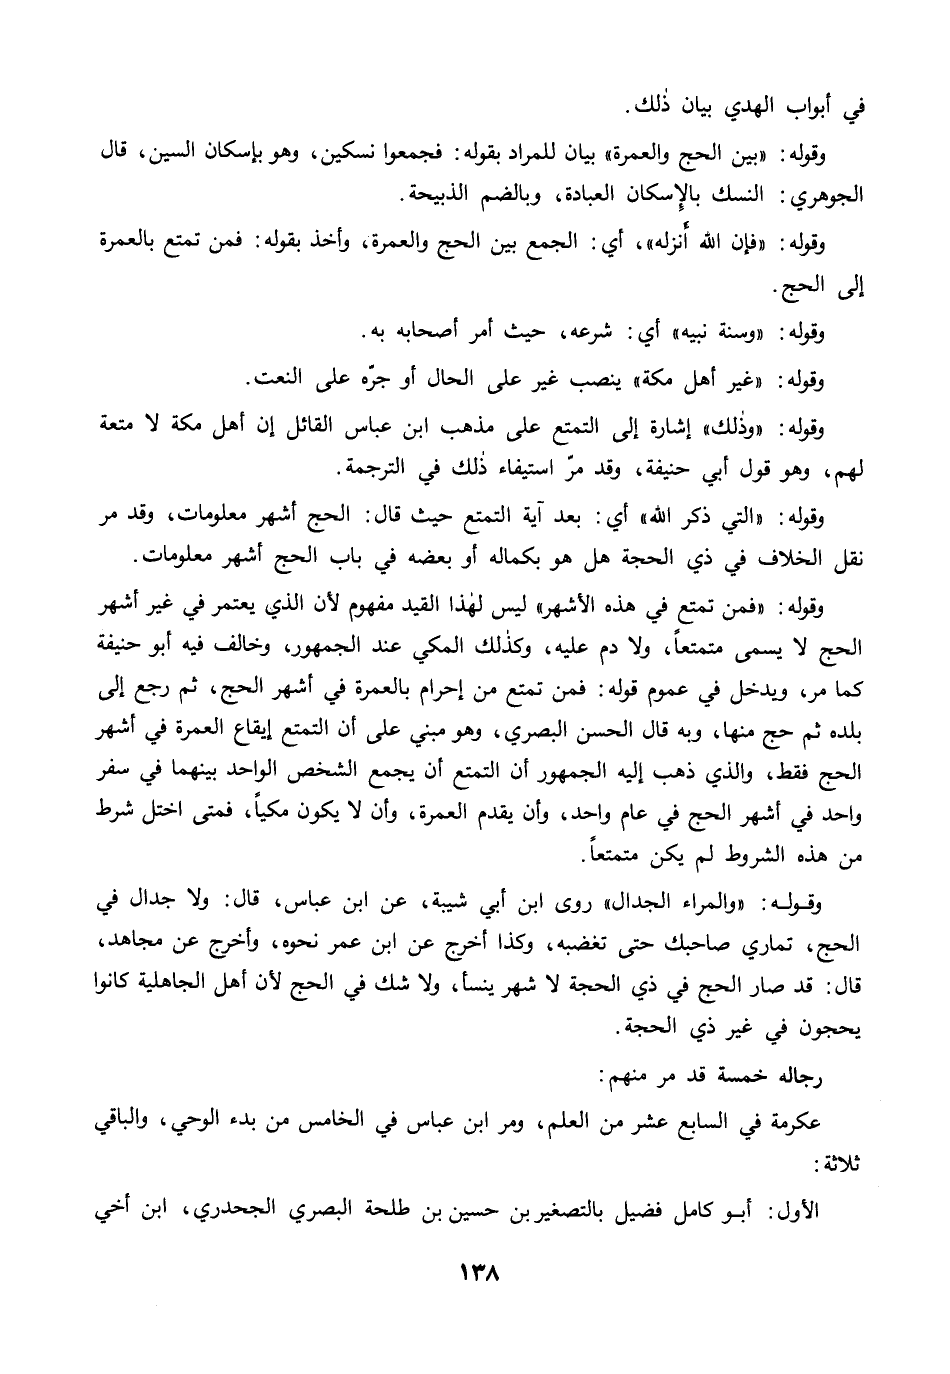 في أبواب الهدي بيان ذٰلك.
وقوله: «بين الحج والعمرة» بيان للمراد بقوله: فجمعوا نسكين، وهو بإسكان السين، قال
الجوهري: النسك بالإسكان العبادة، وبالضم الذبيحة.
وقوله: «فإن الله أنزله»، أي: الجمع بين الحج والعمرة، وأخذ بقوله: فمن تمتع بالعمرة
إلى الحج.
وقوله: «وسنة نبيه» أي: شرعه، حيث أمر أصحابه به.
وقوله: «غير أهل مكة» ينصب غير على الحال أو جرّه على النعت.
وقوله: «وذٰلك» إشارة إلى التمتع على مذهب ابن عباس القائل إن أهل مكة لا متعة
لهم، وهو قول أبي حنيفة، وقد مرّ استيفاء ذٰلك في الترجمة.
وقوله: «التي ذكر الله» أي: بعد آية التمتع حيث قال: الحج أشهر معلومات، وقد مر
نقل الخلاف في ذي الحجة هل هو بكماله أو بعضه في باب الحج أشهر معلومات.
وقوله: «فمن تمتع في هذه الأشهر» ليس لهٰذا القيد مفهوم لأن الذي يعتمر في غير أشهر
الحج لا يسمى متمتعاً، ولا دم عليه، وكذٰلك المكي عند الجمهور، وخالف فيه أبو حنيفة
كما مر، ويدخل في عموم قوله: فمن تمتع من إحرام بالعمرة في أشهر الحج، ثم رجع إلى
بلده ثم حج منها، وبه قال الحسن البصري، وهو مبني على أن التمتع إيقاع العمرة في أشهر
الحج فقط، والذي ذهب إليه الجمهور أن التمتع أن يجمع الشخص الواحد بينهما في سفر
واحد في أشهر الحج في عام واحد، وأن يقدم العمرة، وأن لا يكون مكياً، فمتى اختل شرط
من هذه الشروط لم يكن متمتعاً.
وقوله: «والمراء الجدال» روى ابن أبي شيبة، عن ابن عباس، قال: ولا جدال في
الحج، تماري صاحبك حتى تغضبه، وكذا أخرج عن ابن عمر نحوه، وأخرج عن مجاهد،
قال: قد صار الحج في ذي الحجة لا شهر ينسأ، ولا شك في الحج لأن أهل الجاهلية كانوا
يحجون في غير ذي الحجة.
رجاله خمسة قد مر منهم:
عكرمة في السابع عشر من العلم، ومر ابن عباس في الخامس من بدء الوحي، والباقي
ثلاثة:
الأول: أبو كامل فضيل بالتصغير بن حسين بن طلحة البصري الجحدري، ابن أخي
١٣٨